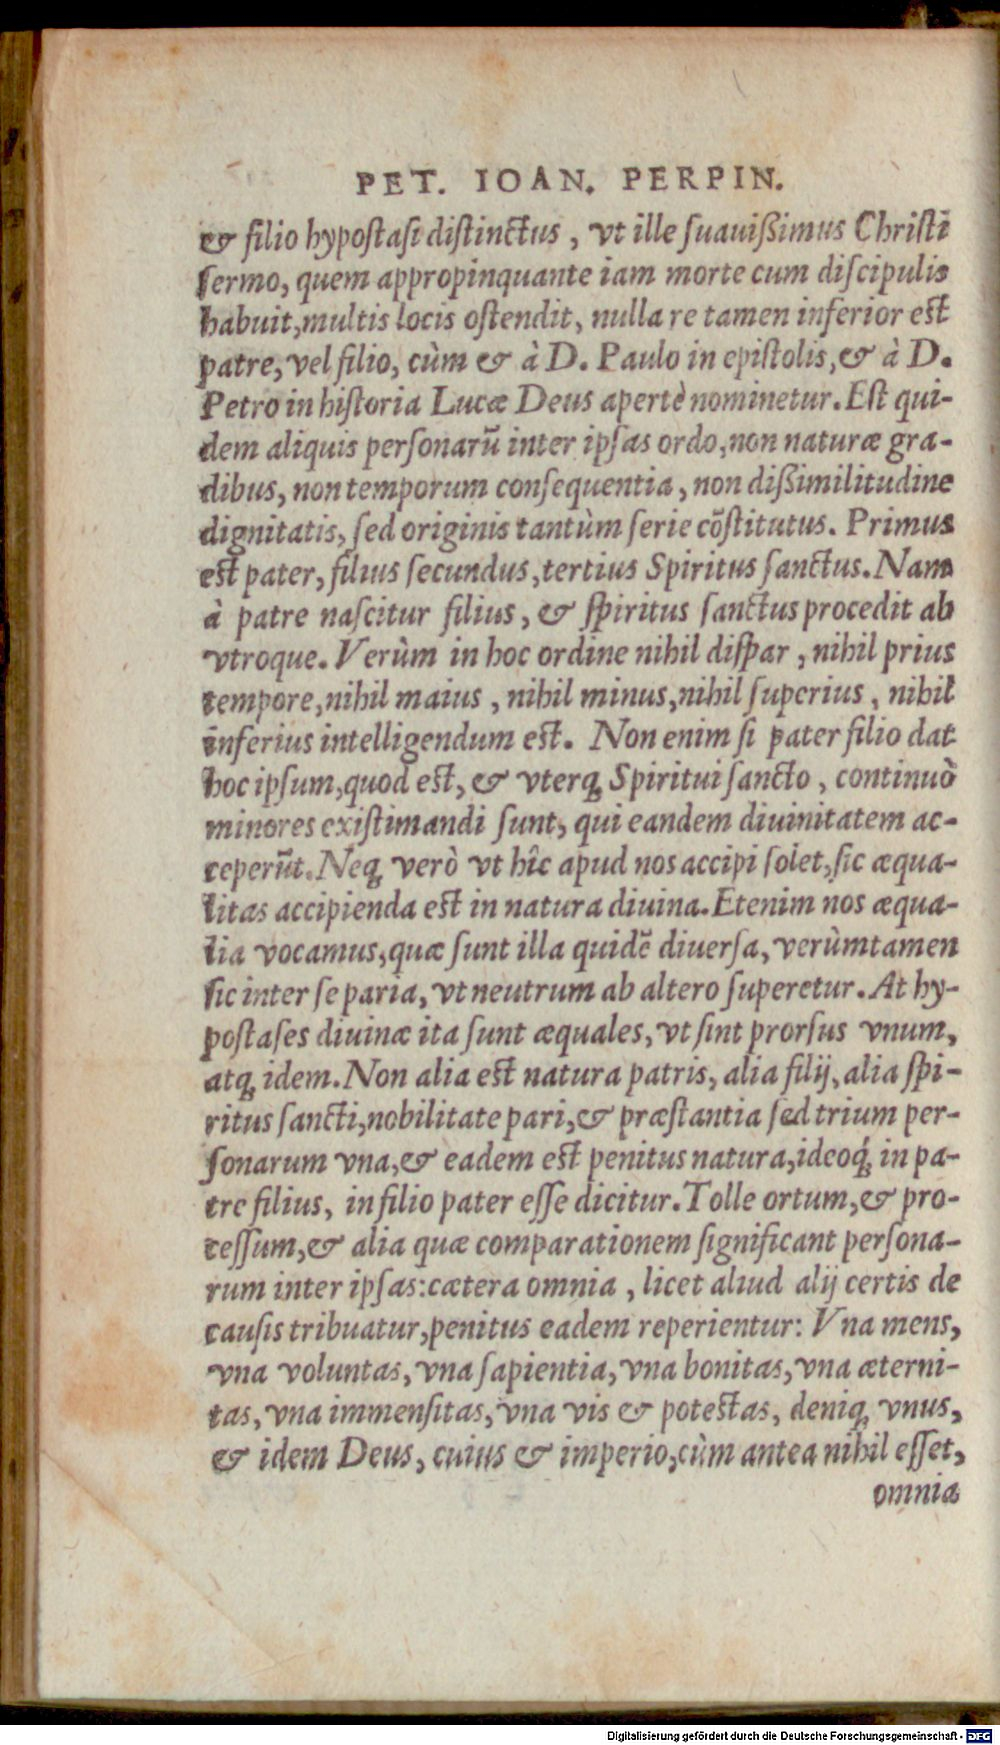 PET. IOAN. PERPIN.
& filio hypoſtaſi diſtinctus, vt ille ſuauißimus Chriſti
ſermo, quem appropinquante iam morte cum diſcipulis
habuit, multis locis oſtendit, nulla re tamen inferior eſt
patre, vel filio, cùm & à D. Paulo in epiſtolis, & à D.
Petro in hiſtoria Lucæ Deus apertè nominetur. Eſt qui-
dem aliquis perſonarũ inter ipſas ordo, non naturæ gra-
dibus, non temporum conſequentia, non dißimilitudine
dignitatis, ſed originis tantùm ſerie cõſtitutus. Primus
eſt pater, filius ſecundus, tertius Spiritus ſanctus. Nam
à patre naſcitur filius, & ſpiritus ſanctus procedit ab
vtroque. Verùm in hoc ordine nihil diſpar, nihil prius
tempore, nihil maius, nihil minus, nihil ſuperius, nihil
inferius intelligendum eſt. Non enim ſi pater filio dat
hoc ipſum, quod eſt, & vterq; Spiritui ſancto, continuò
minores exiſtimandi ſunt, qui eandem diuinitatem ac-
ceperũt. Neq; verò vt hîc apud nos accipi ſolet, ſic æqua-
litas accipienda eſt in natura diuina. Etenim nos æqua-
lia vocamus, quæ ſunt illa quidẽ diuerſa, verùmtamen
ſic inter ſe paria, vt neutrum ab altero ſuperetur. At hy-
poſtaſes diuinæ ita ſunt æquales, vt ſint prorſus vnum,
atq; idem. Non alia eſt natura patris, alia filij, alia ſpi-
ritus ſancti, nobilitate pari, & præſtantia ſed trium per-
ſonarum vna, & eadem eſt penitus natura, ideoq́; in pa-
tre filius, in filio pater eſſe dicitur. Tolle ortum, & pro-
ceſſum, & alia quæ comparationem ſignificant perſona-
rum inter ipſas: cætera omnia, licet aliud alij certis de
cauſis tribuatur, penitus eadem reperientur: Vna mens,
vna voluntas, vna ſapientia, vna bonitas, vna æterni-
tas, vna immenſitas, vna vis & poteſtas, deniq; vnus,
& idem Deus, cuius & imperio, cùm antea nihil eſſet,
omnia
Digitalisierung gefördert durch die Deutsche Forschungsgemeinschaft - DFG